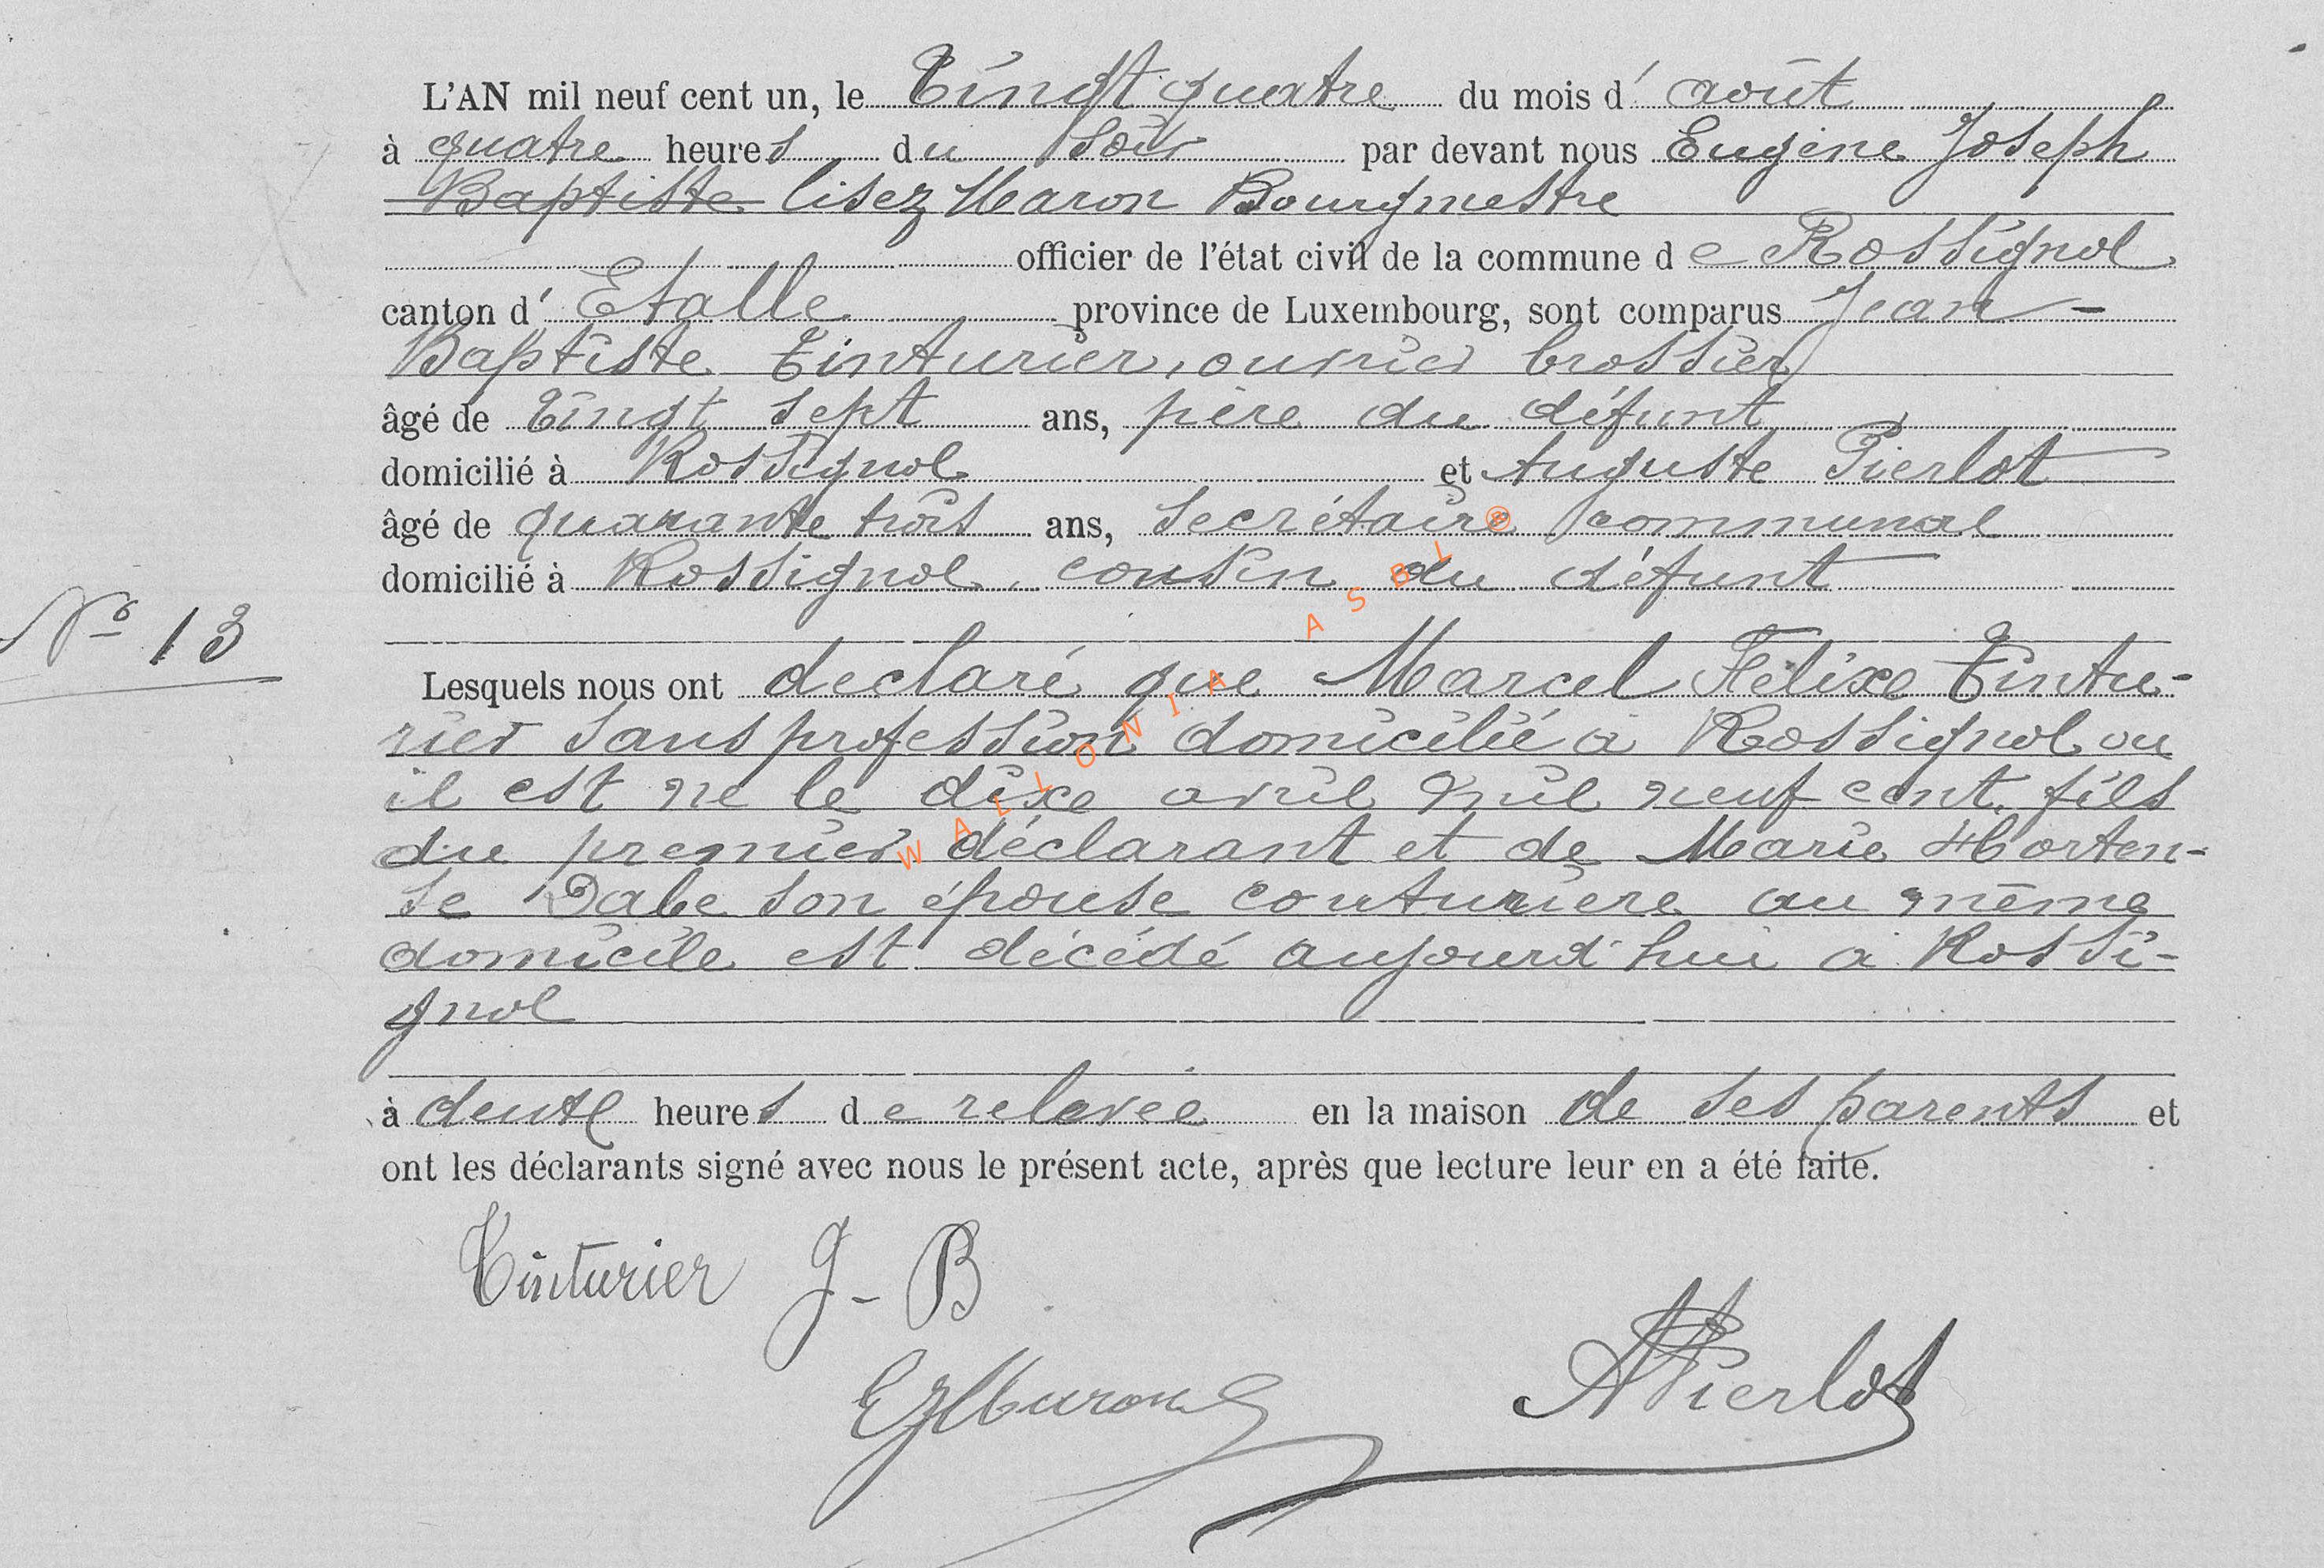 L'AN mil neuf cent un, le Vingt quatre du mois d' août
à quatre heures du soir par devant nous Eugène Joseph
Baptiste lisez Maron Bourgmestre
officier de l'état civil de la commune de Rossignol
canton d' Etalle province de Luxembourg, sont comparus Jean-
Baptiste Tinturier, ouvrier brossier
âgé de Vingt sept ans, père du défunt
domicilié à Rossignol et Auguste Pierlot
âgé de quarante trois ans, secrétaire communal
domicilié à Rossignol, cousin du défunt
N° 13
Lesquels nous ont declaré que Marcel Félixe Tintu-
rier sans profession domicilié à Rossignol ou
il est ne le dixe avril mil neuf cent, fils
du premier déclarant et de Marie Horten-
se Dabe son épouse couturiere au même
domicile est décédé aujourd'hui à Rossi-
gnol
à deuxe heures de relevée en la maison de ses parents et
ont les déclarants signé avec nous le présent acte, après que lecture leur en a été faite.
Tinturier J-B
EJMaron
APierlot
WALLONIA ASBL ®